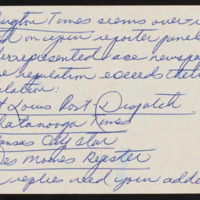 ington Times seems over-r
d on upon reporter panels
derrepresented are newspap
se reputation exceeds their
ulation:
t Louis Post-Dispatch
hatanooga Times
ansas City Star
es Moines Register
replies need your addre